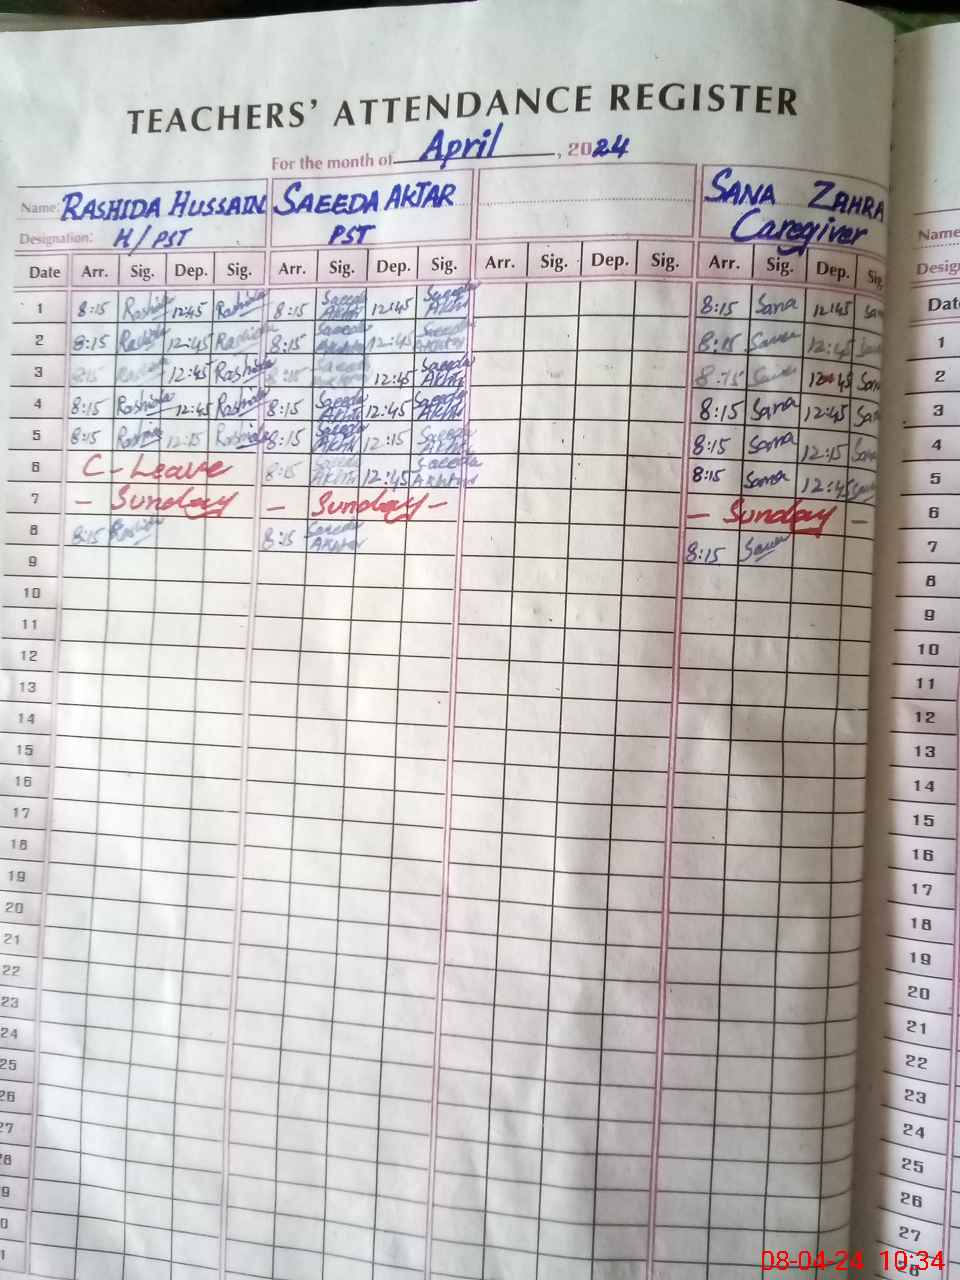 TEACHERS' ATTENDANCE REGISTER
For the month of April, 2024
Name: RASHIDA HUSSAIN SAEEDA AKTAR SANA ZAHRA
Designation: H/PST PST Caregiver
Date Arr. Sig. Dep. Sig. Arr. Sig. Dep. Sig. Arr. Sig. Dep. Sig. Arr. Sig. Dep. Sig
1 8:15 Rashida 12:45 Rashida 8:15 Saeeda Akhtr 12:45 Saeeda Akhtr 8:15 Sana 12:45 Sa
2 8:15 Rashida 12:45 Rashida 8:15 Saeeda Akhtar 12:45 Saeeda Akhtar 8:15 Sana 12:45 Sana
3 8:15 Rashida 12:45 Rashida 8:15 Saeeda 12:45 Saeeda Akhtr 8:15 Sana 12:45 Sana
4 8:15 Rashida 12:45 Rashida 8:15 Saeeda Akhtr 12:45 Saeeda Akhtr 8:15 Sana 12:45 Sa
5 8:15 Rashida 12:15 Rashida 8:15 Saeeda Akhtr 12:15 Saeeda Akhtar 8:15 Sana 12:15 Sana
6 C-Leave 8:15 Saeeda Akhtr 12:45 Saeeda Akhtar 8:15 Sana 12:45 Sana
7 - Sunday - Sunday - - Sunday -
8 8:15 Rashida 8:15 Saeeda Akhtar 8:15 Sana
9
10
11
12
13
14
15
16
17
18
19
20
21
22
23
24
25
26
27
28
9
0
1
Name
Desig
Dat
1
2
3
4
5
6
7
8
9
10
11
12
13
14
15
16
17
18
19
20
21
22
23
24
25
26
27
28
08-04-24 10:34